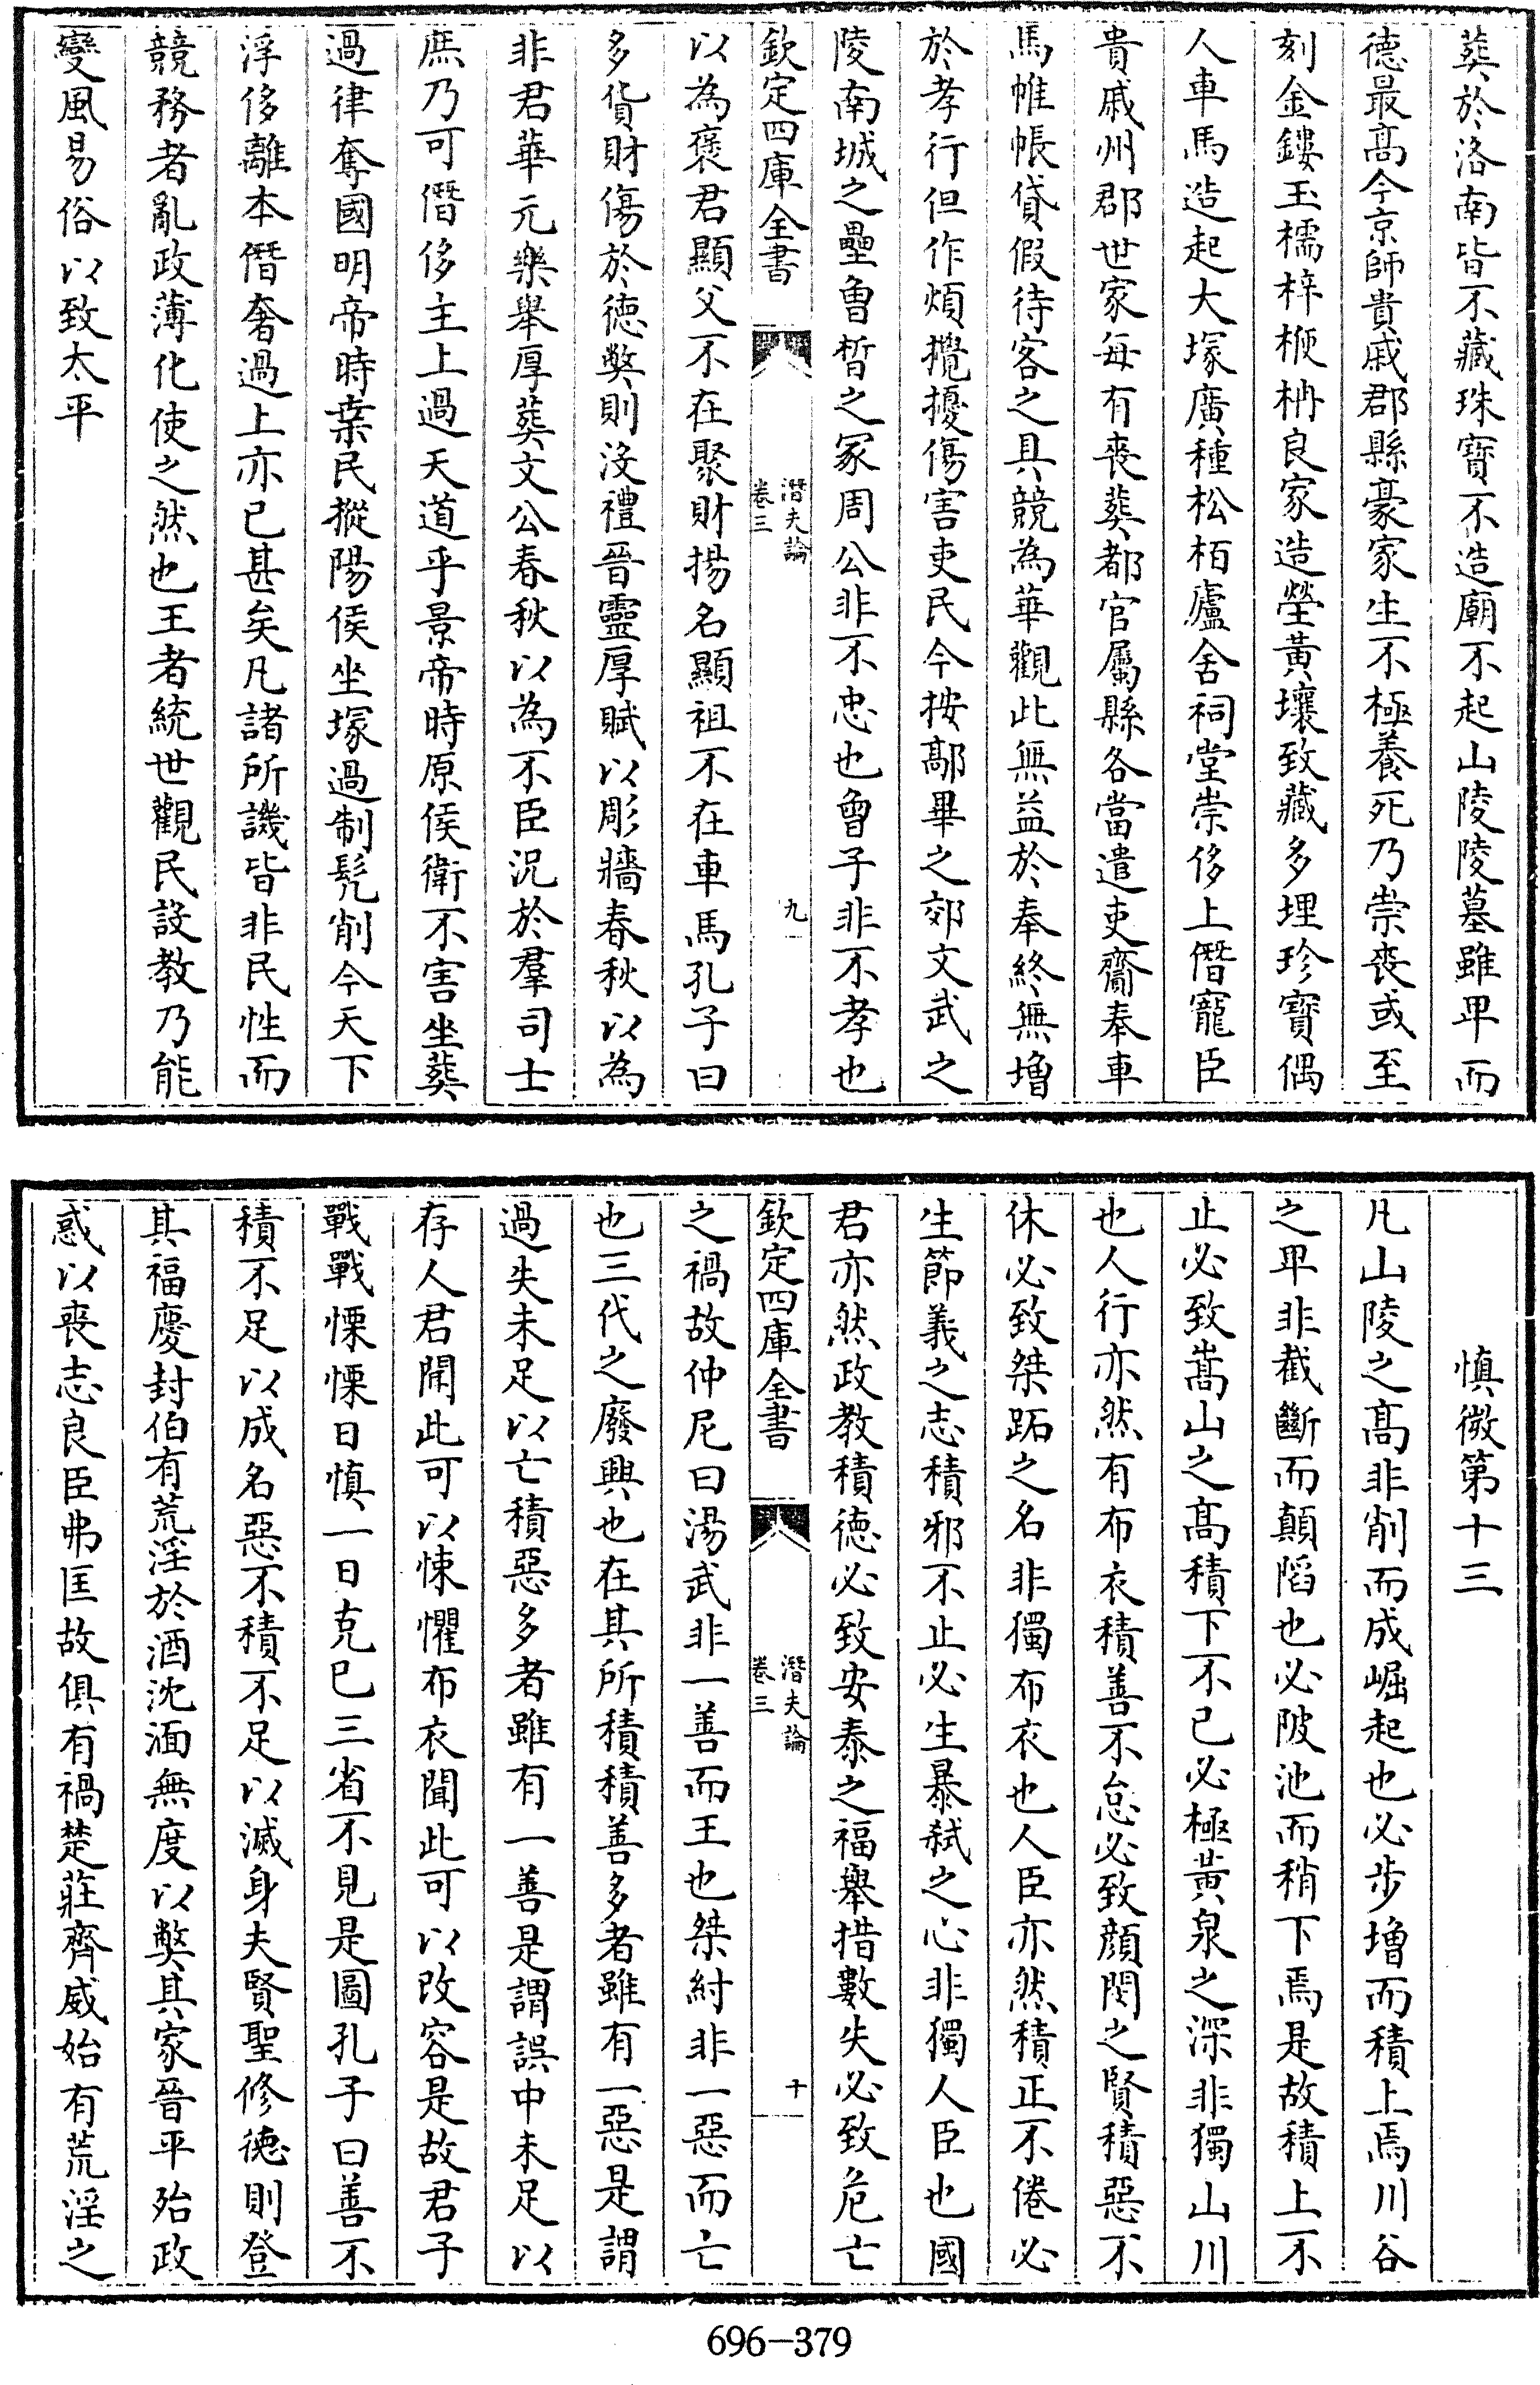 葬於洛南皆不藏珠寶不造廟不起山陵陵墓雖卑而
德最髙今京師貴戚郡縣豪家生不極養死乃崇喪或至
刻金鏤玉檽梓楩柟良家造塋黃壤致藏多埋珍寶偶
人車馬造起大塚廣種松栢廬舍祠堂崇侈上僭寵臣
貴戚州郡世家每有喪葬都官屬縣各當遣吏齎奉車
馬帷帳貸假待客之具競為華觀此無益於奉終無増
於孝行但作煩攪擾傷害吏民今按鄗畢之郊文武之
陵南城之壘曾晳之冢周公非不忠也曾子非不孝也
欽定四庫全書
潛夫論
卷三
九
以為褒君顯父不在聚財揚名顯祖不在車馬孔子曰
多貨財傷於徳弊則沒禮晉靈厚賦以彫牆春秋以為
非君華元樂舉厚葬文公春秋以為不臣況於羣司士
庶乃可僭侈主上過天道乎景帝時原侯衛不害坐葬
過律奪國明帝時桒民摐陽侯坐塚過制髠削今天下
浮侈離本僭奢過上亦已甚矣凡諸所譏皆非民性而
競務者亂政薄化使之然也王者統世觀民設教乃能
變風易俗以致太平
慎微第十三
凡山陵之髙非削而成崛起也必步增而積上焉川谷
之卑非截斷而顛䧟也必陂池而稍下焉是故積上不
止必致嵩山之髙積下不已必極黃泉之深非獨山川
也人行亦然有布衣積善不怠必致顔閔之賢積惡不
休必致桀跖之名非獨布衣也人臣亦然積正不倦必
生節義之志積邪不止必生暴弑之心非獨人臣也國
君亦然政教積徳必致安泰之福舉措數失必致危亡
欽定四庫全書
潛夫論
卷三
十
之禍故仲尼曰湯武非一善而王也桀紂非一惡而亡
也三代之廢興也在其所積積善多者雖有一惡是謂
過失未足以亡積惡多者雖有一善是謂誤中未足以
存人君聞此可以悚懼布衣聞此可以改容是故君子
戰戰慄慄日慎一日克己三省不見是圖孔子曰善不
積不足以成名惡不積不足以滅身夫賢聖修徳則登
其福慶封伯有荒淫於酒沈湎無度以弊其家晉平殆政
惑以喪志良臣弗匡故俱有禍楚莊齊威始有荒淫之
696-379